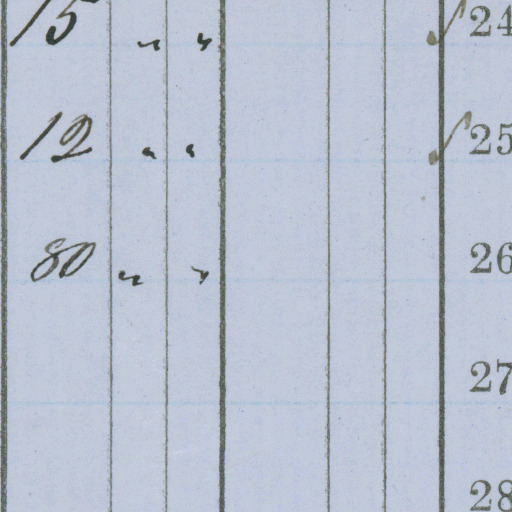 15 " " √ 24
12 " " √ 25
80 " " 26
27
28